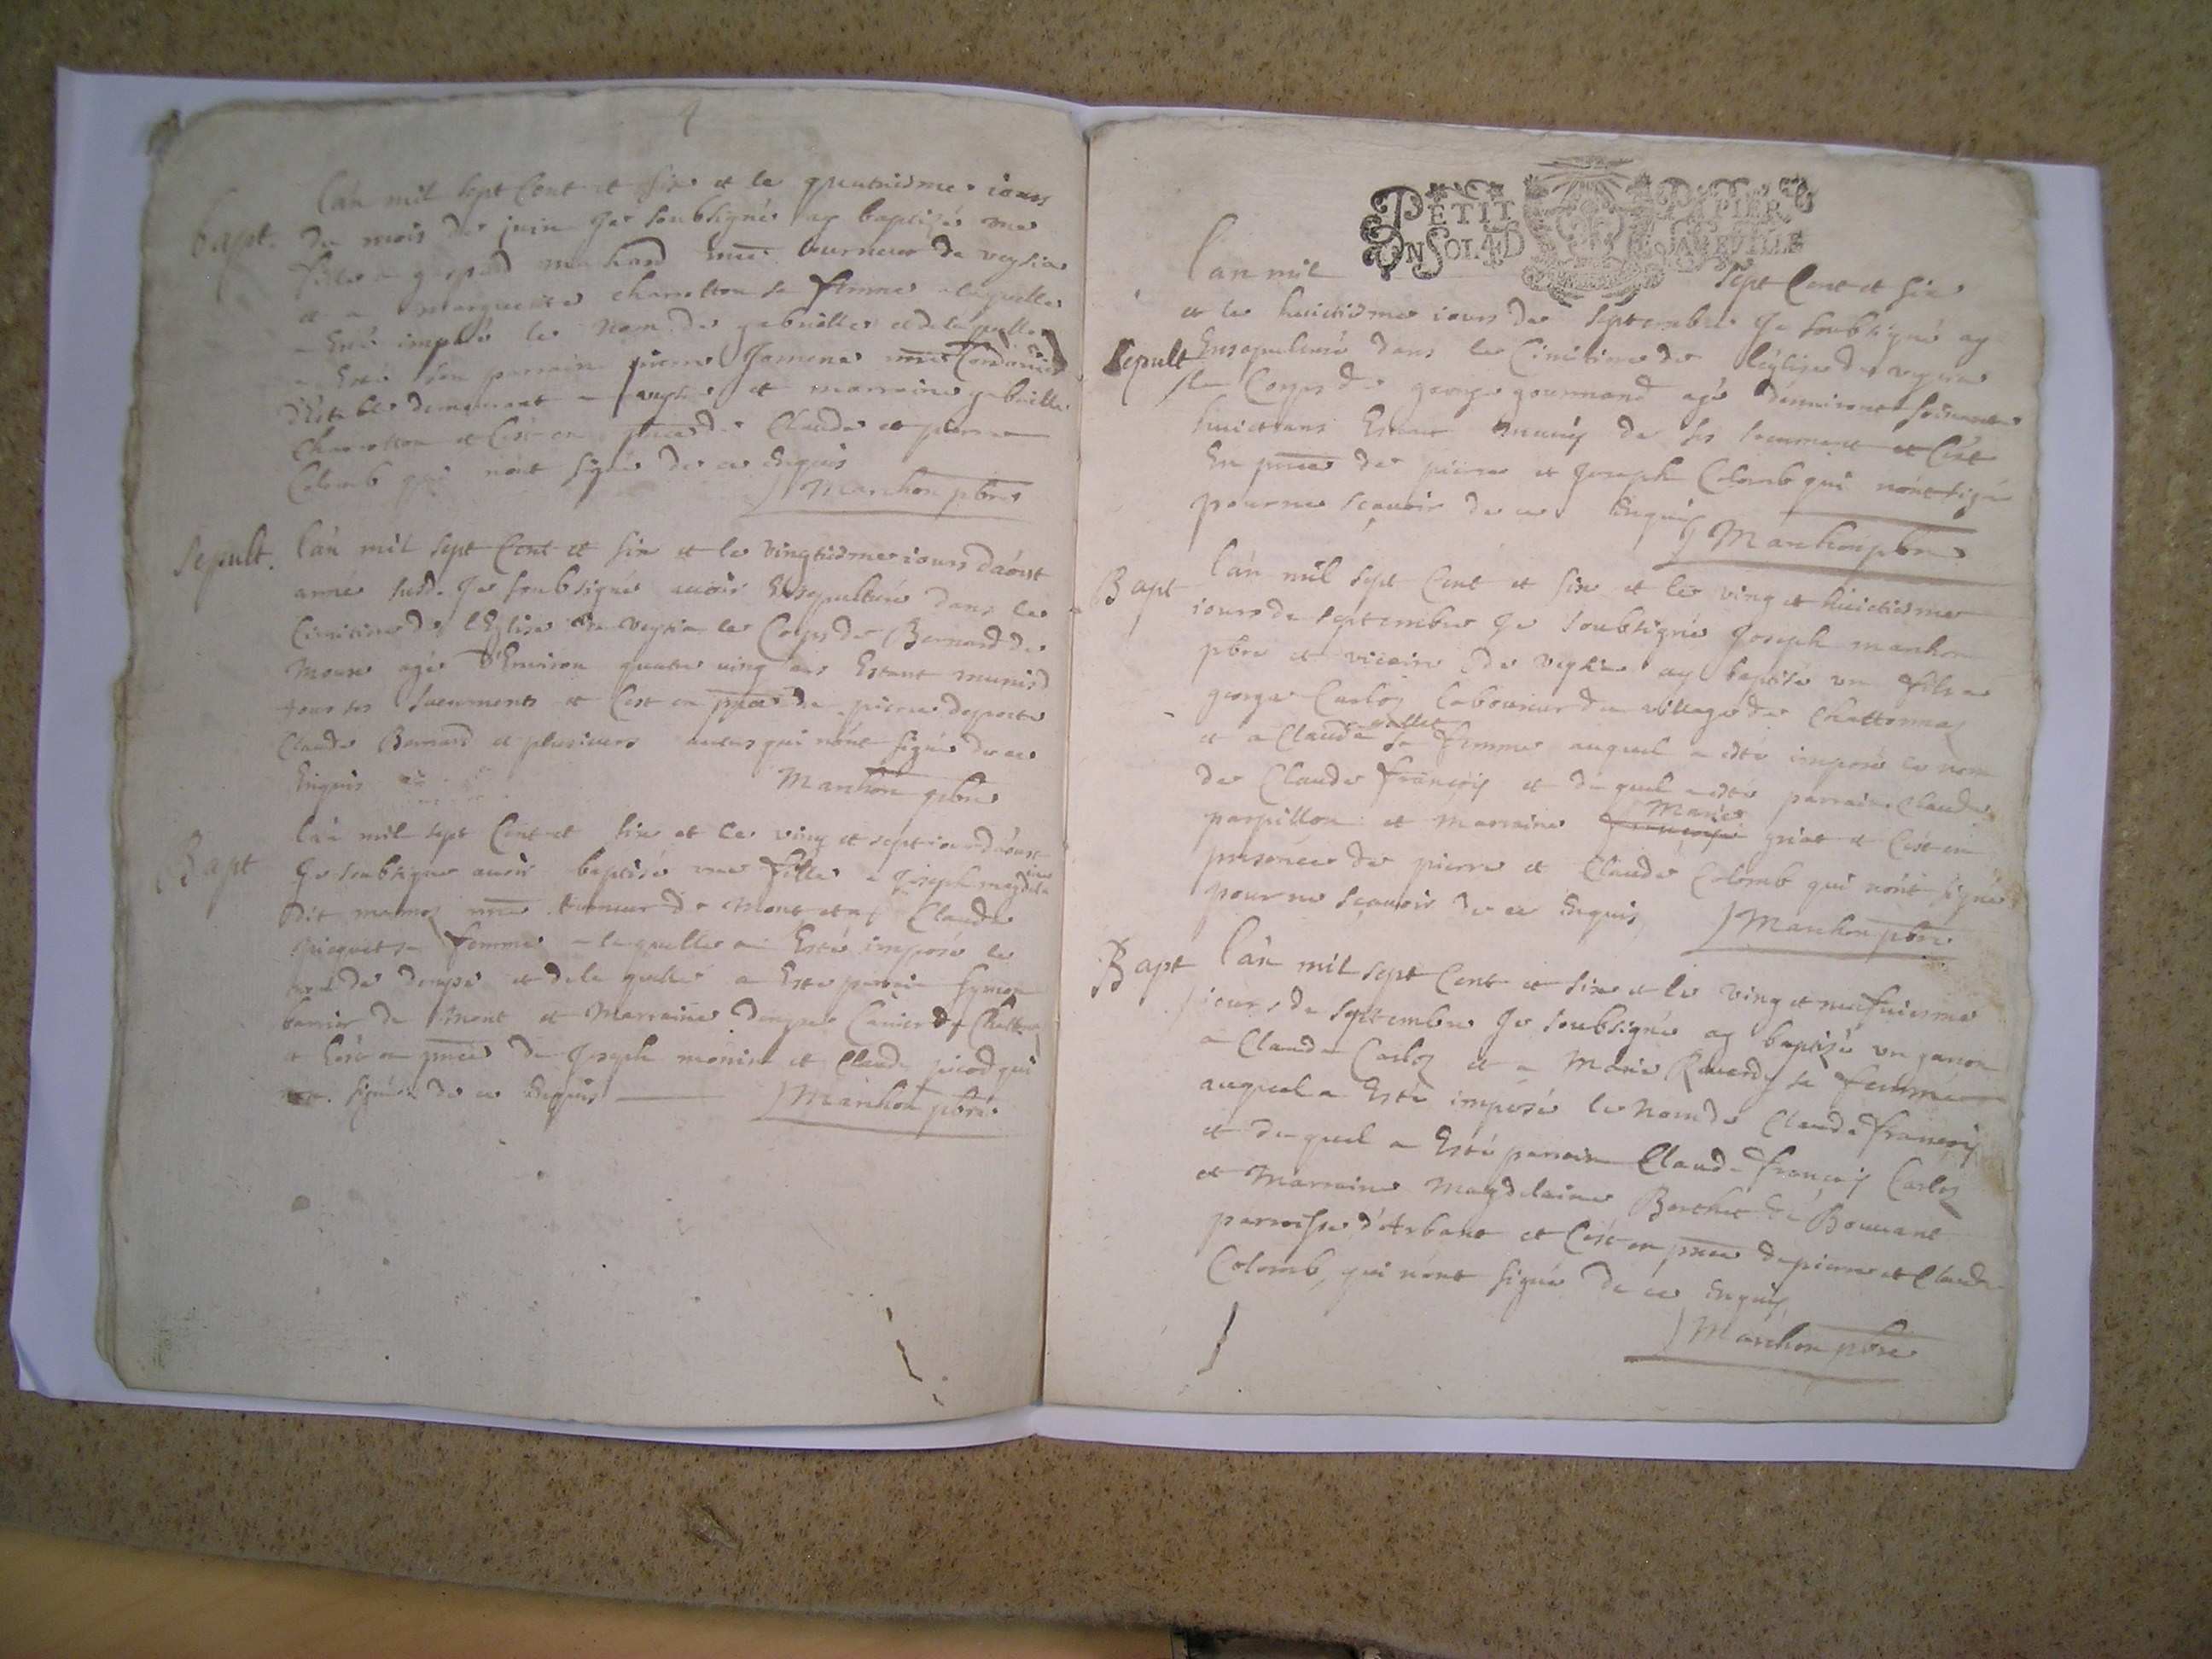 l'an mil sept Cent et six et le quatriesme iours
bapt. du mois de juin Je soubsigné ay baptizé une
fille a gaspard marchand tourneur de veysia
et a marguerite charrotton sa femme a laquelle
a Esté imposé le Nom de gabrielle et de laquelle
a Esté son parrain pierre
demeurant a et marraine gabrielle
charrotton et C'est en pnce de Claude et pierre
Colomb qui n'ont signé de ce Enquis
Marchon pbre
Sepult. l'an mil sept Cent et six et le vingtiesme iours d'aóust
année susd. Je soubsigné avoir Ensepulturé dans le
Cimitiere de l'Eglise de veysia le Corps de Bernard de
agé d'Environ quatre ving ans Estant munis
tous ses sacrements et C'est en pnce de pierre
Claude Bernard et plusieurs autres qui n'ont signé de ce
Enquis
Marchon pbre
Bapt l'an mil sept Cent et six et le ving et sept iour d'aóust
Je soubsigne avoir baptisé une fille a Joseph
dit tourneur de Mont et a Claude
sa femme a laquelle a Esté imposé le
de et de la quelle a Esté parrain
de Mont et Marraine
et C'est en pnce de Joseph et Claude qui
signé de ce Enquis
Marchon pbre
PETIT PAPIER
UN SOL 4 D
l'an mil sept Cent et six
et le huictiesme iours de Septembre Je soubsigné ay
Sepult Ensepulturé dans le Cimitiere de l'église de veysia
le Corps de george gourmand agé d'environt soixante
huict ans Estant munis de ses sacrement et C'est
En pnce de pierre et Joseph Colomb qui n'ont signé
pour ne sçavoir de ce Enquis
Marchon pbre
Bapt l'an mil sept Cent et six et le ving et huictiesme
iours de septembre Je soubsigné Joseph marchon
pbre et vicaire de veysia ay baptisé un fils a
george Carloz laboureur du village de Chattonnaz
et a Claude sa femme auquel a esté imposé le nom
de Claude françois et duquel a esté parrain Claude
parpillon et marraine Marie griat et C'est en
presence de pierre et Claude Colomb qui n'ont signé
pour ne sçavoir de ce Enquis
Marchon pbre
Bapt l'an mil sept Cent et six et le ving et neufuiesme
iours de septembre Je soubsigné ay baptizé un garcon
a Claude Carloz et a Marie Reverdy sa femme
auquel a Esté imposé le Nom de Claude françois
et duquel a Esté parrain Claude françois Carloz
et Marraine Magdelaine Berthet de Bouuant
parroisse d'Arbant et C'est en pnce de pierre et Claude
Colomb, qui n'ont signé de ce Enquis
Marchon pbre